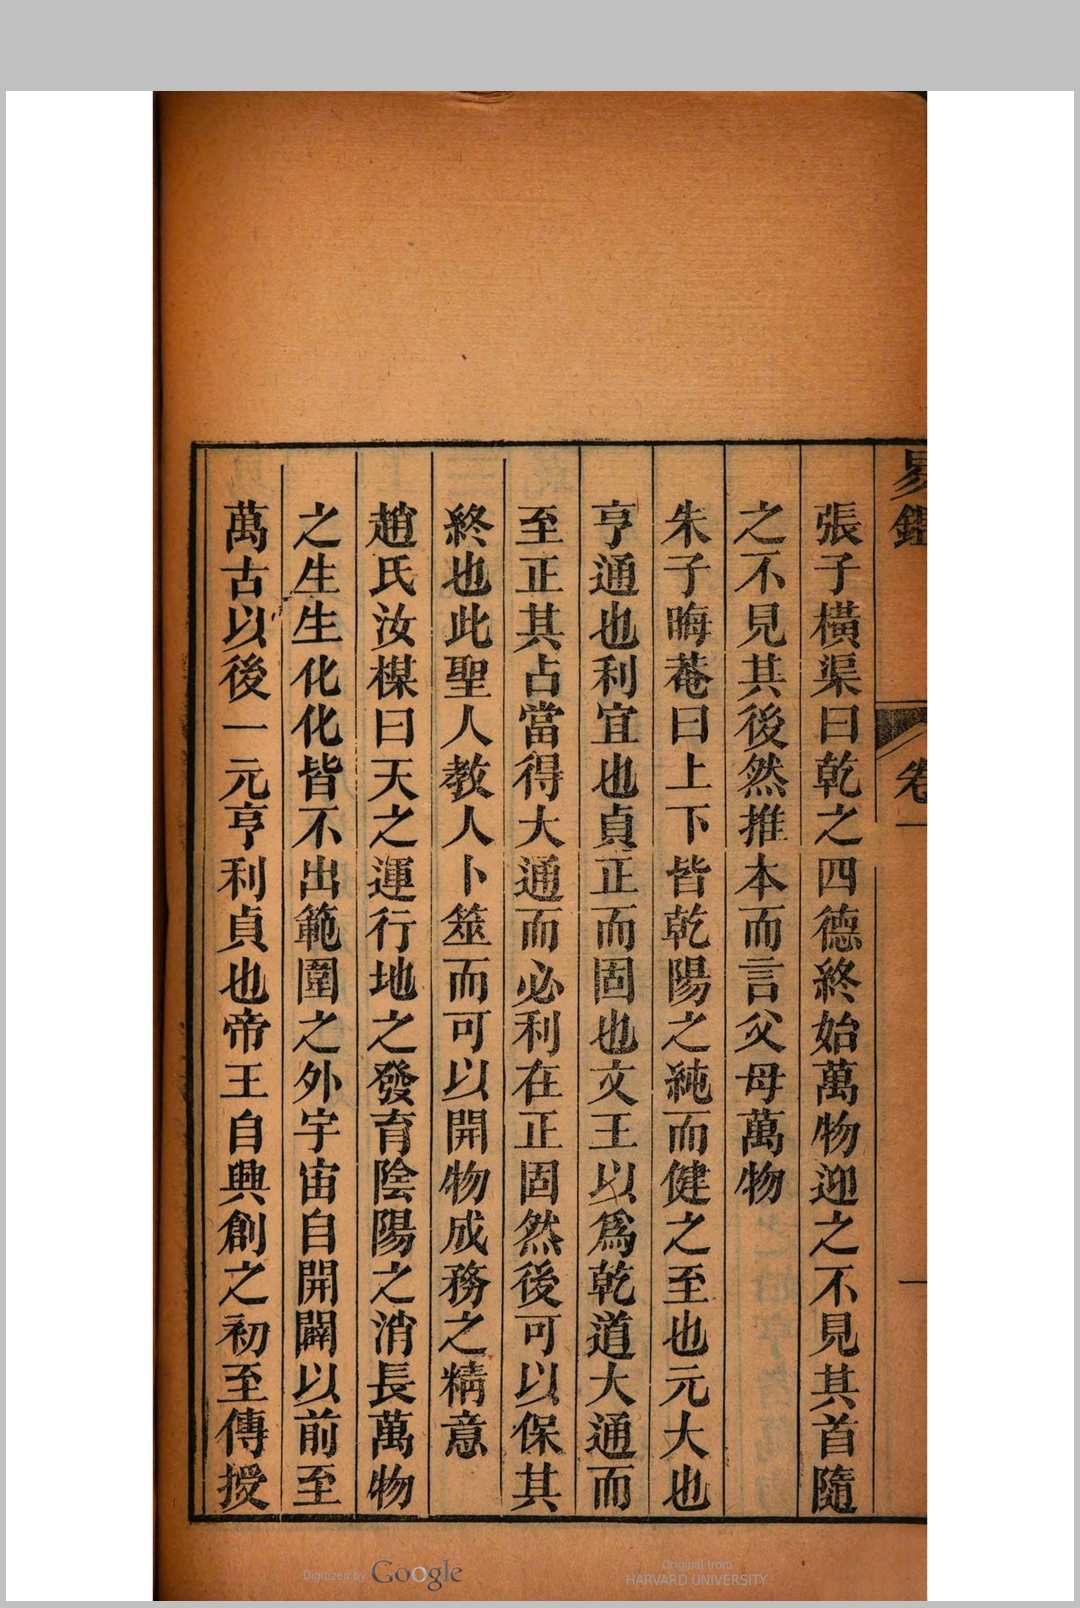 易鑑
卷一
一
張子橫渠曰乾之四德終始萬物迎之不見其首隨
之不見其後然推本而言父母萬物
朱子晦菴曰上下皆乾陽之純而健之至也元大也
亨通也利宜也貞正而固也文王以爲乾道大通而
至正其占當得大通而必利在正固然後可以保其
終也此聖人教人卜筮而可以開物成務之精意
趙氏汝楳曰天之運行地之發育陰陽之消長萬物
之生生化化皆不出範圍之外宇宙自開闢以前至
萬古以後一元亨利貞也帝王自興創之初至傳授
Digitized by Google
Original from
HARVARD UNIVERSITY